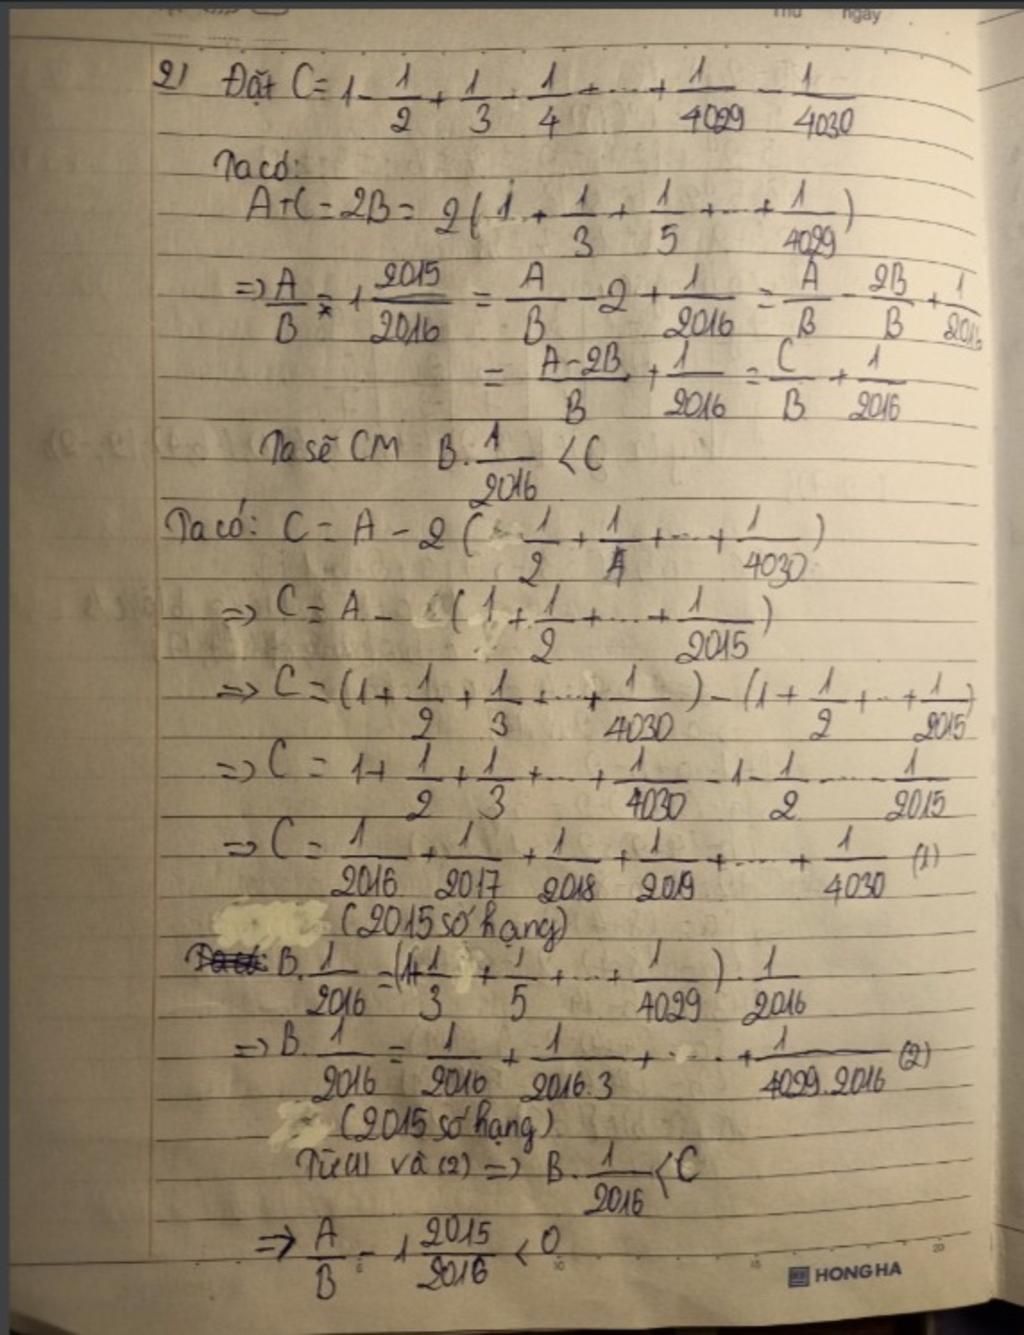 Thứ ngày
21 Đặt C = 1 - 1/2 + 1/3 - 1/4 + ... + 1/4029 - 1/4030
Ta có:
A+C = 2B = 2(1 + 1/3 + 1/5 + ... + 1/4029)
=> A/B - 1 2015/2016 = A/B - 2 + 1/2016 = A/B - 2B/B + 1/2016
= A-2B/B + 1/2016 = C/B + 1/2016
Ta sẽ CM B. 1/2016 < C
Ta có: C = A - 2(1/2 + 1/4 + ... + 1/4030)
=> C = A - (1 + 1/2 + ... + 1/2015)
=> C = (1 + 1/2 + 1/3 + ... + 1/4030) - (1 + 1/2 + ... + 1/2015)
=> C = 1 + 1/2 + 1/3 + ... + 1/4030 - 1 - 1/2 - ... - 1/2015
=> C = 1/2016 + 1/2017 + 1/2018 + 1/2019 + ... + 1/4030 (1)
(2015 số hạng)
B. 1/2016 = (1 + 1/3 + 1/5 + ... + 1/4029) . 1/2016
=> B. 1/2016 = 1/2016 + 1/2016.3 + ... + 1/4029.2016 (2)
(2015 số hạng)
Từ (1) và (2) => B. 1/2016 < C
=> A/B - 1 2015/2016 < 0
5 10 15 20
HONG HA